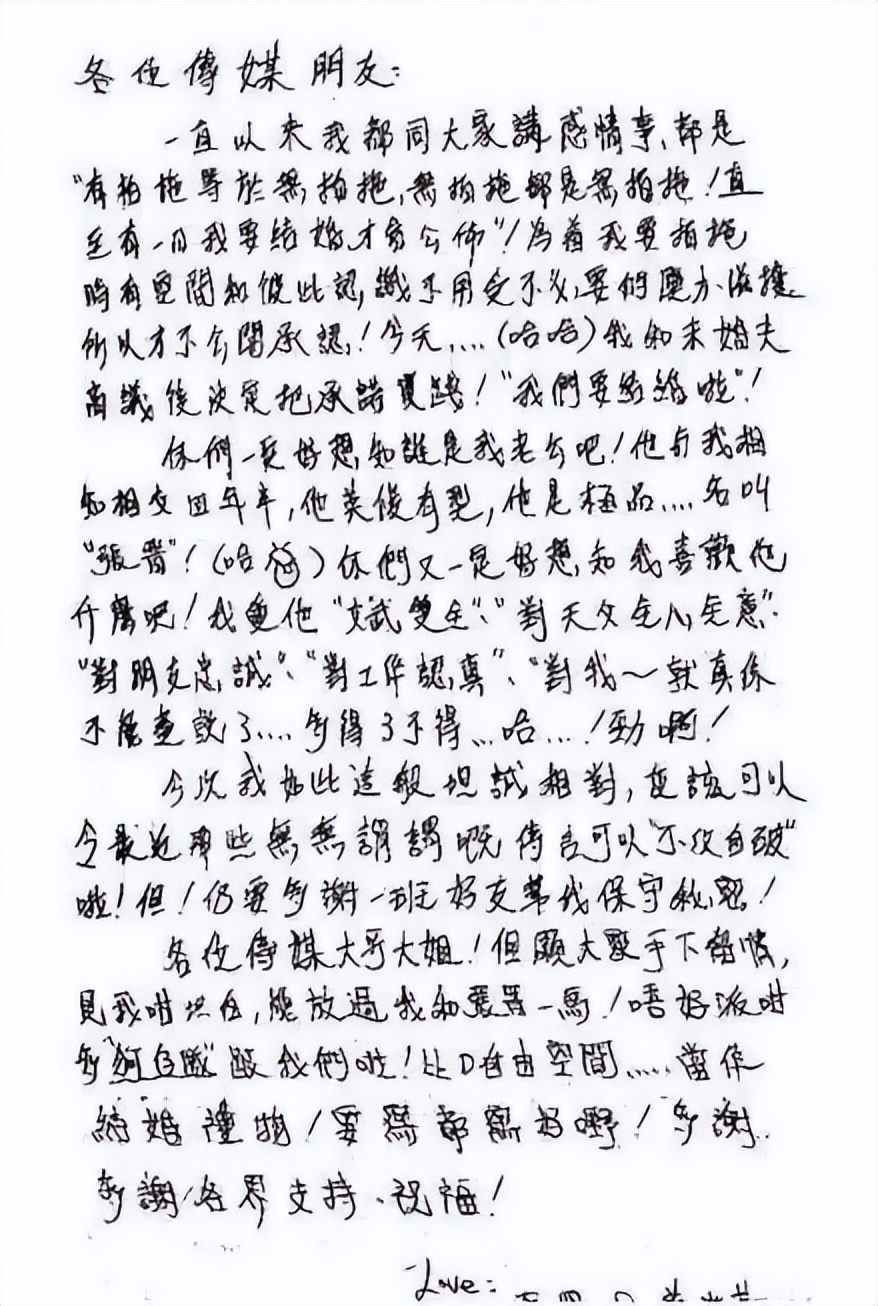 各位傳媒朋友：
一直以來我都同大家講感情事、都是
"有拍拖等於無拍拖，無拍拖都是無拍拖！直
至有一日我要結婚才會公佈"！為著我要拍拖
時有空間和彼此認識不用受不必要的壓力滋擾
所以才不公開承認！今天....（哈哈）我和未婚夫
商議後決定把承諾實踐！"我們要結婚啦"！
你們一定好想知誰是我老公吧！他与我相
知相交四年半，他英俊有型，他是極品....名叫
"張晋"！（哈哈）你們又一定好想知我喜歡他
什麼吧！我愛他"文武雙全"、"對天父全心全意"、
"對朋友忠誠"、"對工作認真"、"對我～就真係
不能盡說了....多得了不得...哈...！勁啊！
今次我如此這般坦誠相對，应該可以
令最近那些無無謂謂嘅傳言可以"不攻自破"
啦！但！仍要多謝一班好友幫我保守秘密！
各位傳媒大哥大姐！但願大家手下留情，
見我咁坦白，能放過我和張晋一馬！唔好派咁
多"狗仔隊"跟我們啦！比D自由空間.....當作
結婚禮物！要寫都寫好嘢！多謝..
多謝各界支持、祝福！
Love：